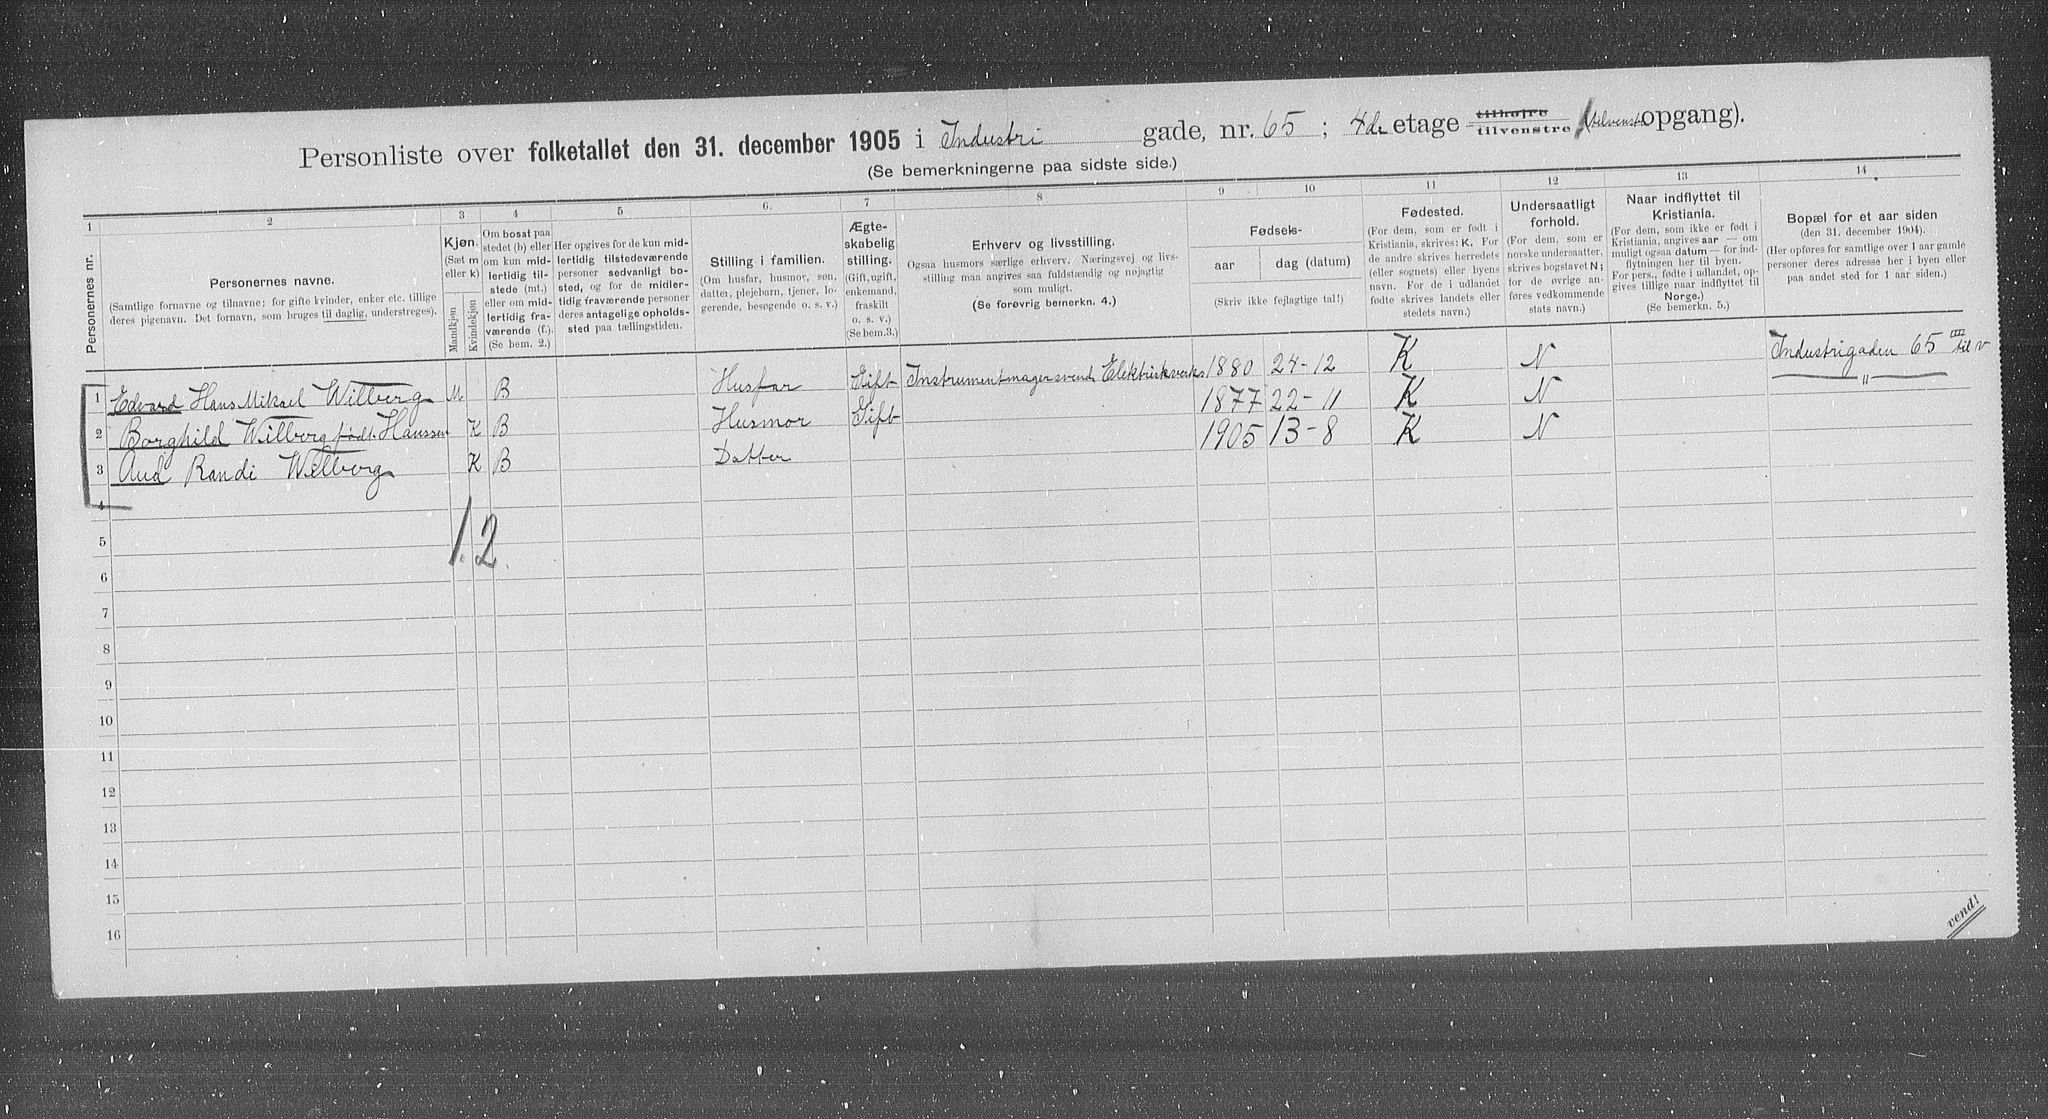 Personliste over folketallet den 31. december 1905 i Industri gade, nr. 65 ; 4de etage tilhøjre tilvenstre (tilvenstre opgang).
(Se bemerkningerne paa sidste side.)
1 2 3 4 5 6. 7 8 9 10 11 12 13 14
Personernes nr.
Personernes navne.
(Samtlige fornavne og tilnavne; for gifte kvinder, enker etc. tillige
deres pigenavn. Det fornavn, som bruges til daglig, understreges).
Kjøn.
(Sæt m
eller k)
Mandkjøn
Kvindekjøn
Om bosat paa
stedet (b) eller
om kun mid-
lertidig til-
stede (mt.)
eller om mid-
lertidig fra-
værende (f.).
(Se bem. 2.)
Her opgives for de kun mid-
lertidig tilstedeværende
personer sedvanligt bo-
sted, og for de midler-
tidig fraværende personer
deres antagelige opholds-
sted paa tællingstiden.
Stilling i familien.
(Om husfar, husmor, søn,
datter, plejebarn, tjener, lo-
gerende, besøgende o. s. v.)
Ægte-
skabelig
stilling.
(Gift, ugift,
enkemand,
fraskilt
o. s. v.)
(Se bem.3.)
Erhverv og livsstilling.
Ogsaa husmors særlige erhverv. Næringsvej og livs-
stilling maa angives saa fuldstændig og nøjagtig
som muligt.
(Se forøvrig bemerkn. 4.)
Fødsels-
aar
dag (datum)
(Skriv ikke fejlagtige tal!)
Fødested.
(For dem, som er født i
Kristiania, skrives: K. For
de andre skrives herredets
(eller sognets) eller byens
navn. For de i udlandet
fødte skrives landets eller
stedets navn.)
Undersaatligt
forhold.
(For dem, som er
norske undersaatter,
skrives bogstavet N;
for de øvrige an-
føres vedkommende
stats navn.)
Naar indflyttet til
Kristiania.
(For dem, som ikke er født i
Kristiania, angives aar — om
muligt ogsaa datum — for ind-
flytningen her til byen.
For pers., fødte i udlandet, op-
gives tillige naar indflyttet til
Norge.)
(Se bemerkn. 5.)
Bopæl for et aar siden
(den 31. december 1904).
(Her opføres for samtlige over 1 aar gamle
personer deres adresse her i byen eller
paa andet sted for 1 aar siden.)
1 Edvard Hans Mikael Wilberg M B Husfar Gift Instrumentmagersvend Elektrisk verks 1880 24-12 K N Industrigaden 65 III til v
2 Borghild Wilberg født Hanssen K B Husmor Gift 1877 22-11 K N "
3 Aud Randi Wilberg K B Datter 1905 13-8 K N
4
1. 2.
5
6
7
8
9
10
11
12
13
14
15
16
vend!